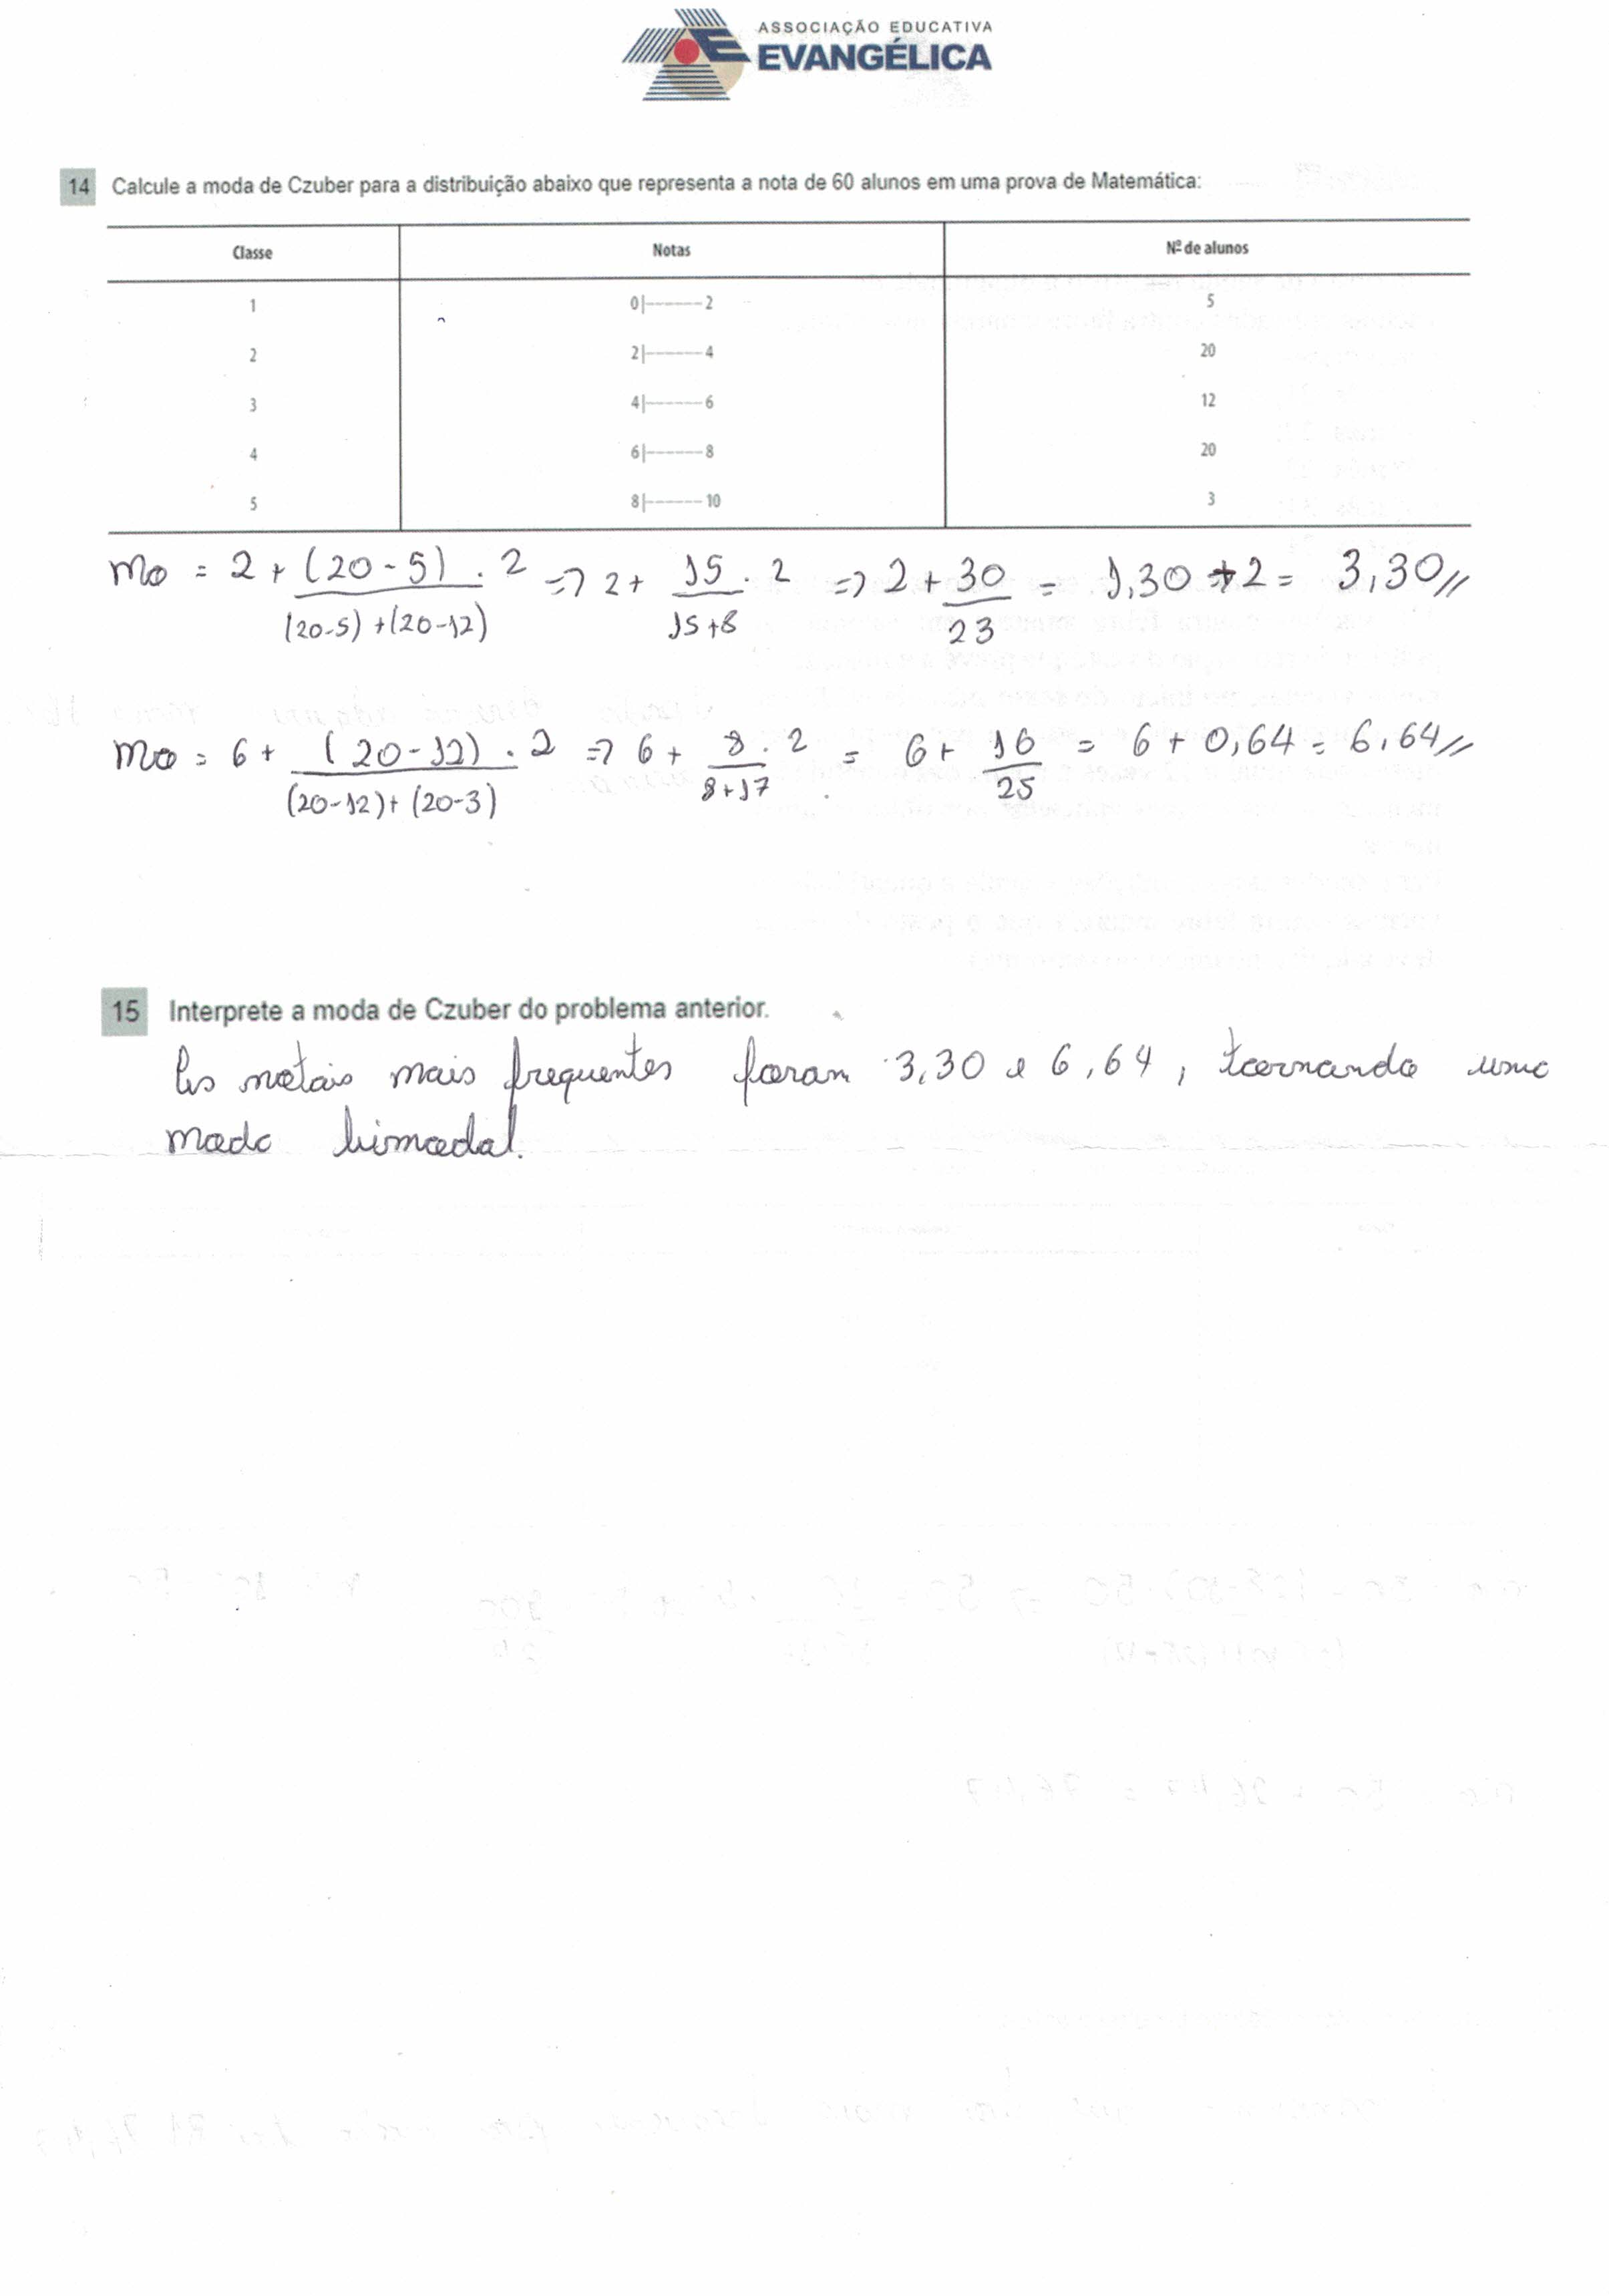 ASSOCIAÇÃO EDUCATIVA
EVANGÉLICA
14 Calcule a moda de Czuber para a distribuição abaixo que representa a nota de 60 alunos em uma prova de Matemática:
Classe Notas Nº de alunos
1 0|------2 5
2 2|------4 20
3 4|------6 12
4 6|------8 20
5 8|------10 3
Mo = 2 + (20-5) . 2 => 2 + 15 . 2 => 2 + 30 = 1,30 + 2 = 3,30//
(20-5) + (20-12) 15+8 23
Mo = 6 + (20-12) . 2 => 6 + 8 . 2 = 6 + 16 = 6 + 0,64 = 6,64//
(20-12) + (20-3) 8+17 25
15 Interprete a moda de Czuber do problema anterior.
As notais mais frequentes foram 3,30 e 6,64, tornando uma
moda bimodal.